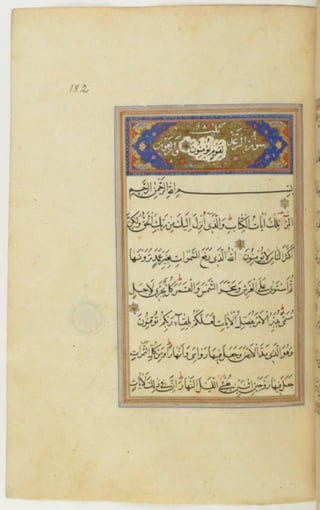 182
لقوم يؤمنون
سورة الرعد
بسم الله الرحمن الرحيم
المر تلك آيات الكتاب والذي أنزل إليك من ربك الحق ولكن
أكثر الناس لا يؤمنون الله الذي رفع السموات بغير عمد ترونها
ثم استوى على العرش وسخر الشمس والقمر كل يجري لأجل
مسمى يدبر الأمر يفصل الآيات لعلكم بلقاء ربكم توقنون
وهو الذي مد الأرض وجعل فيها رواسي وأنهارا ومن كل الثمرات
جعل فيها زوجين اثنين يغشي الليل النهار إن في ذلك لآيات